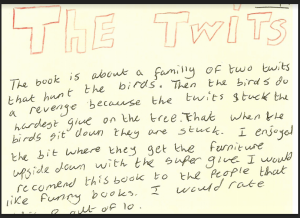 THE TWITS
The book is about a family of two twits
that hunt the birds. Then the birds do
a revenge because the twits stuck the
hardest glue on the tree. That when the
birds sit down they are stuck. I enjoyed
the bit where they get the forniture
upside down with the super glue I would
recomend this book to the people that
like funny books. I would rate
out of 10.